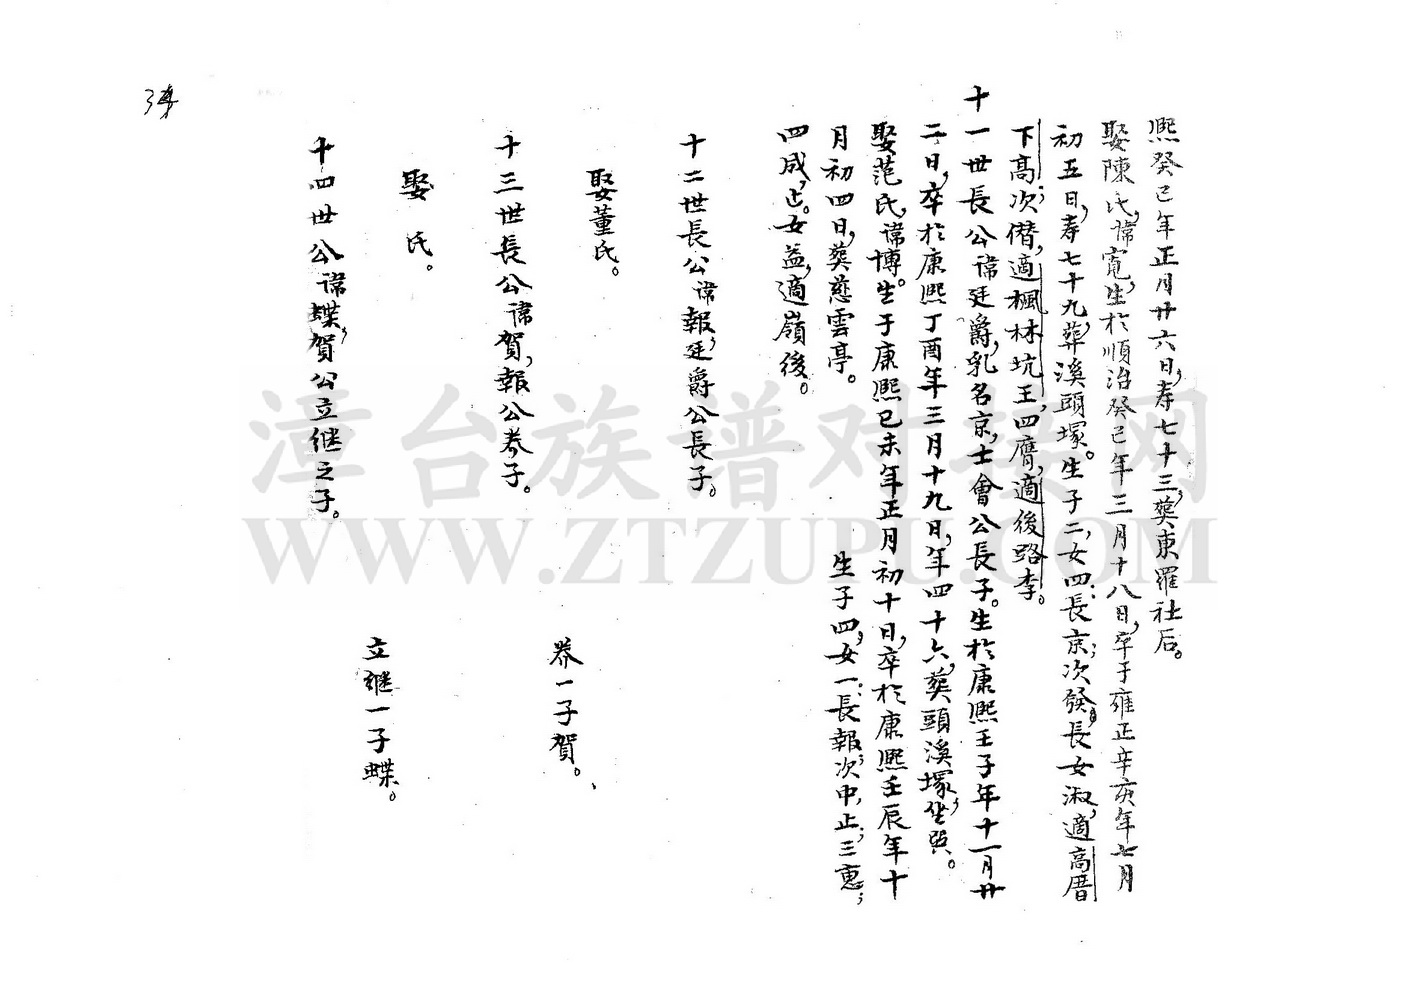 熙癸巳年正月廿六日，寿七十三，葬東羅社后。
娶陳氏，諱寬，生於順治癸巳年三月十八日，卒于雍正辛亥年七月
初五日，寿七十九，葬溪頭塚。生子二，女四：長京；次發；長女淑，適高厝
下高；次僣，適楓林坑王；四腐，適後路李。
十一世長公諱廷爵，乳名京，士會公長子。生於康熙壬子年十一月廿
二日，卒於康熙丁酉年三月十九日，年四十六，葬頭溪塚，坐巽。
娶范氏，諱博。生于康熙己未年正月初十日，卒於康熙壬辰年十
月初四日，葬慈雲亭。 生子四，女一：長報；次中，止；三惠；
四咸，止。女益，適嶺後。
十二世長公諱報，廷爵公長子。
娶董氏。 养一子賀。
十三世長公諱賀，報公养子。
娶 氏。 立继一子蝶。
十四世公諱蝶，賀公立继之子。
漳台族谱对接网
WWW.ZTZUPU.COM